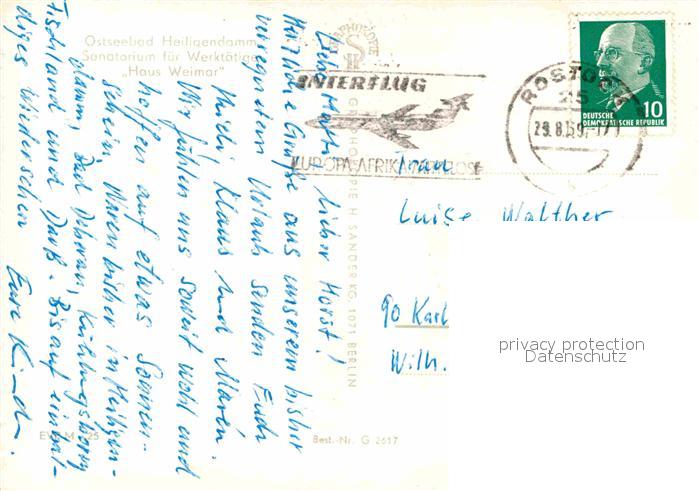 Ostseebad Heiligendamm
Sanatorium für Werktätige
„Haus Weimar“
INTERFLUG
EUROPA-AFRIKA
ROSTOCK
25
29.8.69-17
10
DEUTSCHE
DEMOKRATISCHE REPUBLIK
Frau
Luise Walther
90 Karl
Wilh.
privacy protection
Datenschutz
Liebe Mutti, lieber Horst!
Herzliche Grüße aus unserem bisher
verregneten Urlaub senden Euch
Heidi, Klaus und Maren.
Wir fühlen uns soweit wohl und
hoffen auf etwas Sonnen-
schein. Waren bisher in Heiligen-
damm, Bad Doberan, Kühlungsborn
Fischland und Darß. Bis auf
diges Wiedersehen
Eure Kinder.
H. SANDER KG, 1071 BERLIN
Best.-Nr. G 2617